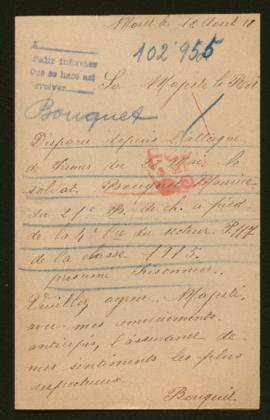 le 12 Aout 18
102'955
A
Pedir informes
Que se hace así
Sa Majesté le Roi
Bouquet
Disparu depuis l'attaque
de du 27 Mai le
soldat Bouquet Maurice
du 21e B. de ch. à pied
de la 4e Cie du secteur P. 117
de la classe 1915.
présumé prisonnier.
Veuillez agréer Majesté,
avec mes remerciements
anticipés, l'assurance de
mes sentiments les plus
respectueux.
Bouquet